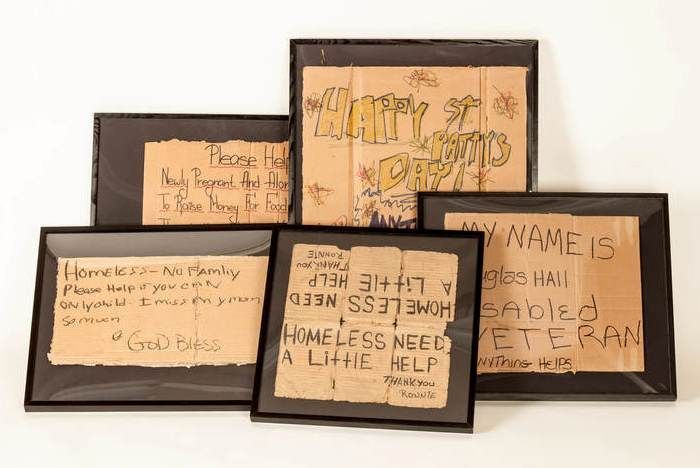 Please Hel
Newly Pregnant And Alon
To Raise Money For Food
HAPPY ST
PATTYS
DAY!
ANYT
MY NAME IS
uglas HAll
sabled
VETERAN
ANYTHING HELPS
HOMELESS - NO FAMliy
Please Help if you can
ONlychild - I miss my mom
so much
GOD BLESS
HOMELESS NEED
A LittlE HELP
THANK YOU
RONNIE
HOMELESS NEED
A LittlE HELP
THANK YOU
RONNIE